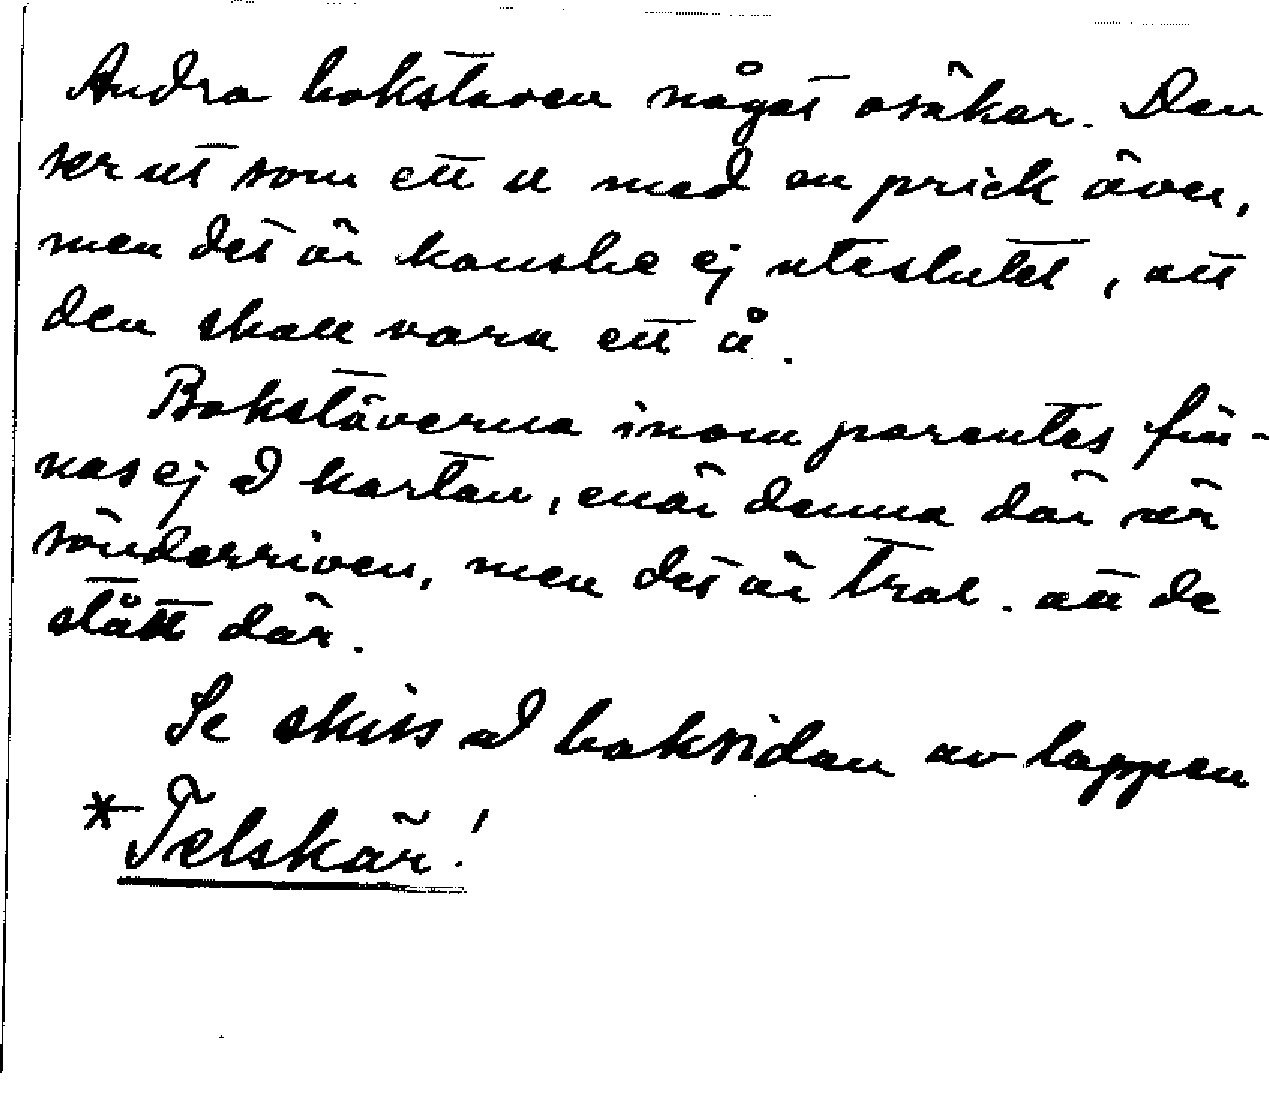 Andra bokstaven något osäker. Den
ser ut som ett a med en prick över,
men det är kanske ej uteslutet, att
den skall vara ett å.
Bokstäverna inom parentes fin-
nas ej å kartan, enär denna där är
sönderriven, men det är trol. att de
stått där.
Se skiss å baksidan av lappen
*Telskär!